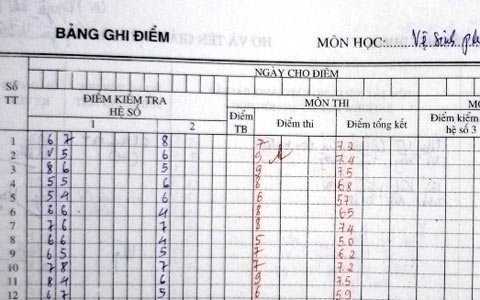 BẢNG GHI ĐIỂM
MÔN HỌC: Vệ sinh
NGÀY CHO ĐIỂM
Số TT
ĐIỂM KIỂM TRA HỆ SỐ
MÔN THI
1 2
Điểm TB Điểm thi Điểm tổng kết
Điểm kiểm
hệ số 3
1 6 7 8 7 7.2
2 5 6 9 7.4
3 8 6 5 9 7.5
4 5 5 6 8 6.8
5 5 4 6 6 5.7
6 6 6 4 8 6.5
7 7 6 7 8 7.4
8 6 6 4 5 5.0
9 6 5 5 7 6.2
10 7 8 7 7 7.2
11 8 4 6 9 7.5
12 6 7 5 6 5.9